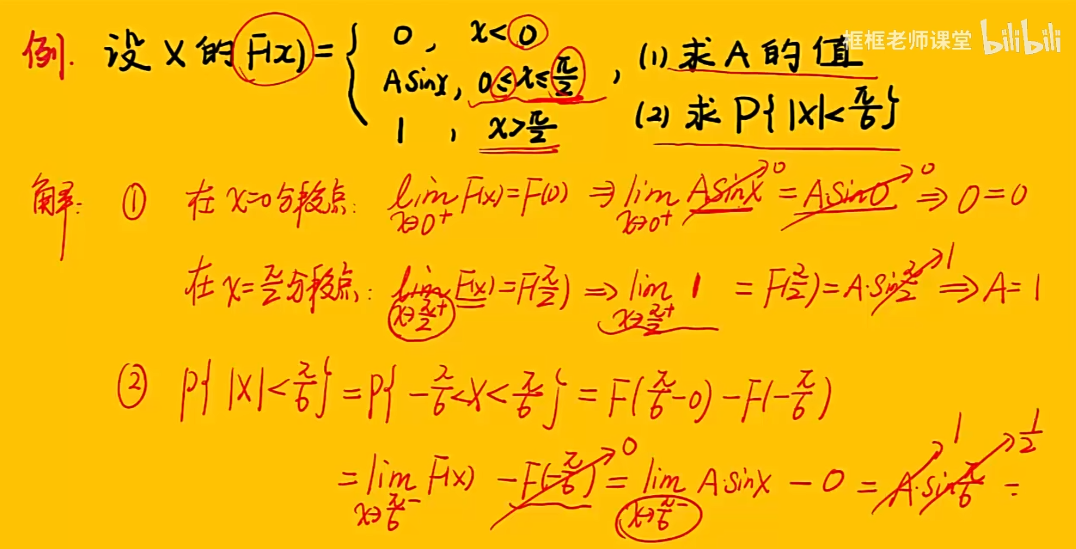 框框老师课堂 bilibili
例. 设 X 的 F(x) = { 0, x<0
Asinx, 0≤x≤π/2 , (1) 求 A 的值
1 , x>π/2 (2) 求 P{|X|<π/6}
解: ① 在 x=0 分段点: lim x→0⁺ F(x)=F(0) ⇒ lim x→0⁺ Asinx →0 = A·sin0 →0 ⇒ 0=0
在 x=π/2 分段点: lim x→π/2⁺ F(x)=F(π/2) ⇒ lim x→π/2⁺ 1 = F(π/2)=A·sinπ/2 →1 ⇒ A=1
② P{|X|<π/6} = P{-π/6<X<π/6} = F(π/6-0) - F(-π/6)
= lim x→π/6⁻ F(x) - F(-π/6) →0 = lim x→π/6⁻ A·sinx - 0 = A →1 ·sinπ/6 →1/2 =